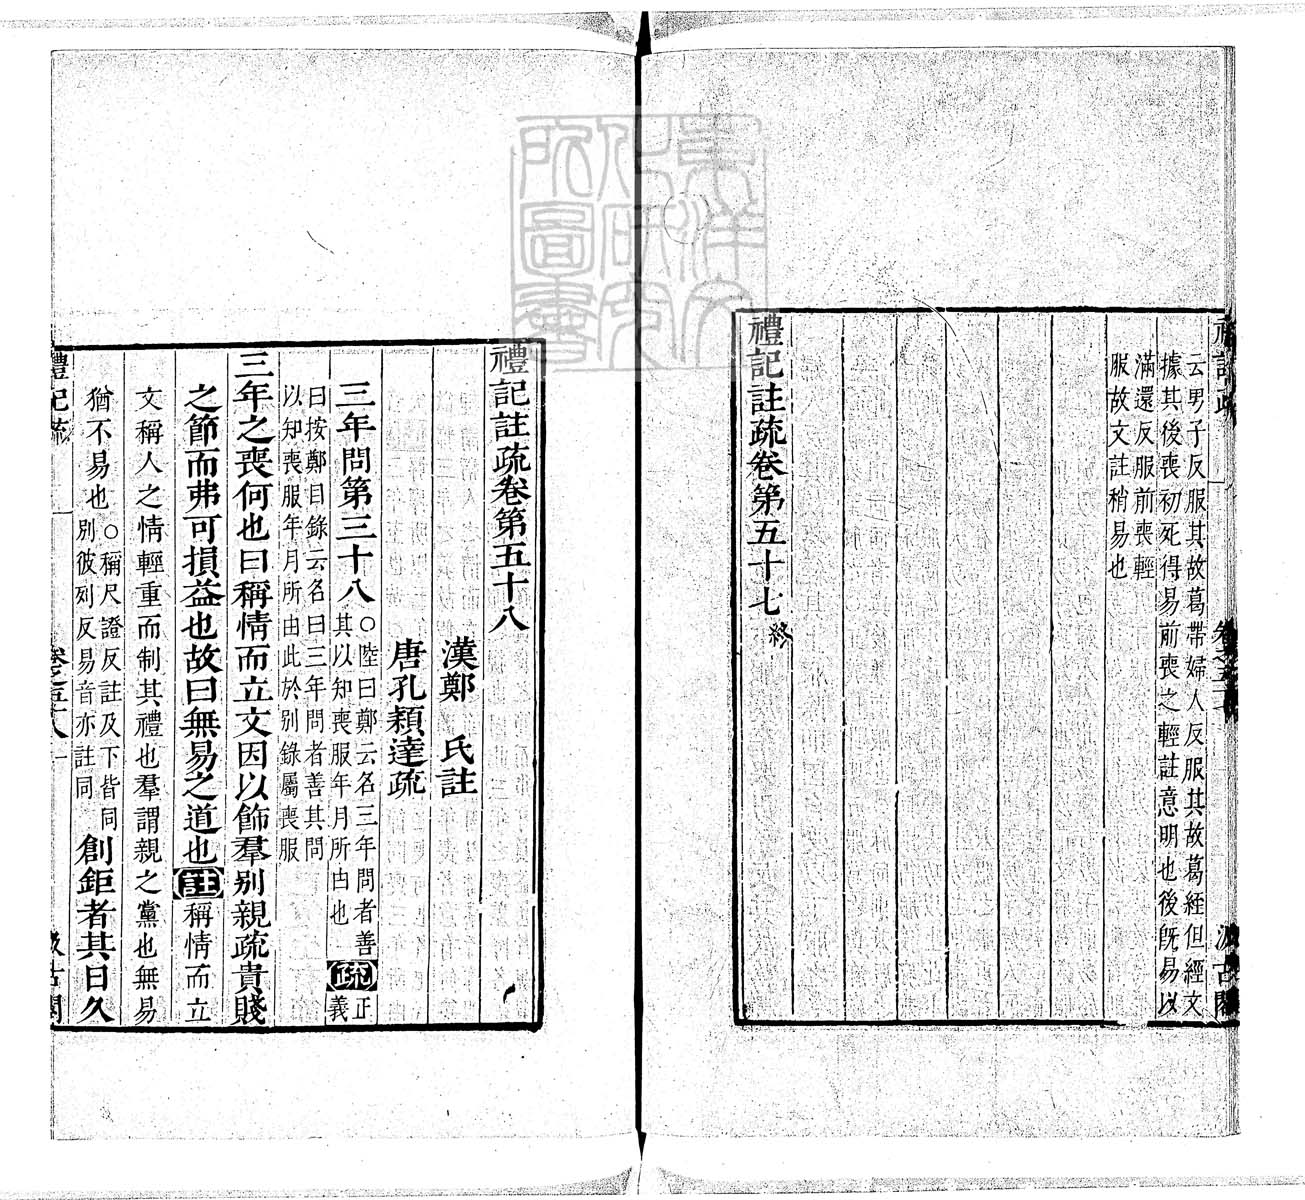 云男子反服其故葛帶婦人反服其故葛絰但經文
據其後喪初死得易前喪之輕註意明也後既易以
滿還反服前喪輕
服故文註稍易也
禮記註疏卷第五十七終
禮記註疏卷第五十八
漢鄭 氏註
唐孔穎達疏
三年問第三十八○陸曰鄭云名三年問者善
其以知喪服年月所由也疏正
義
曰按鄭目錄云名曰三年問者善其問
以知喪服年月所由此於別錄屬喪服
三年之喪何也曰稱情而立文因以飾羣別親疏貴賤
之節而弗可損益也故曰無易之道也註稱情而立
文稱人之情輕重而制其禮也羣謂親之黨也無易
猶不易也○稱尺證反註及下皆同
別彼列反易音亦註同創鉅者其日久
禮記疏 卷之五十八 一 汲古閣